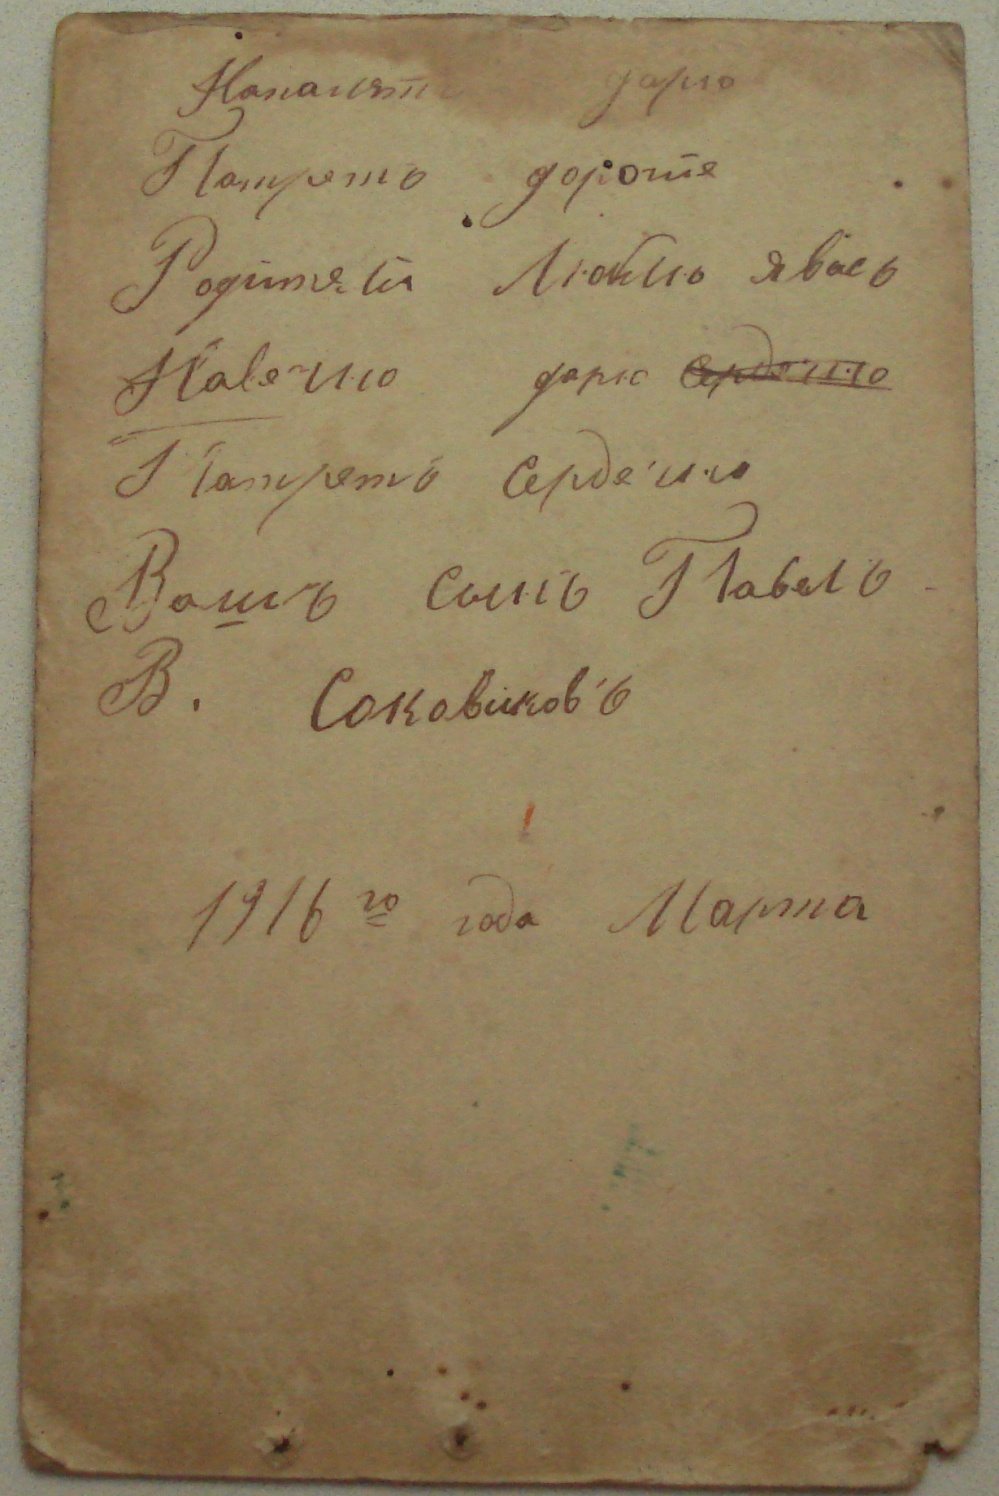 Напамят дарю
Патретъ дорогіе
Родители Люблю явасъ
Навечно дарю сердечно
Патретъ сердечно
Вашъ сынъ Павелъ
В. Соковиковъ
1916го года Марта